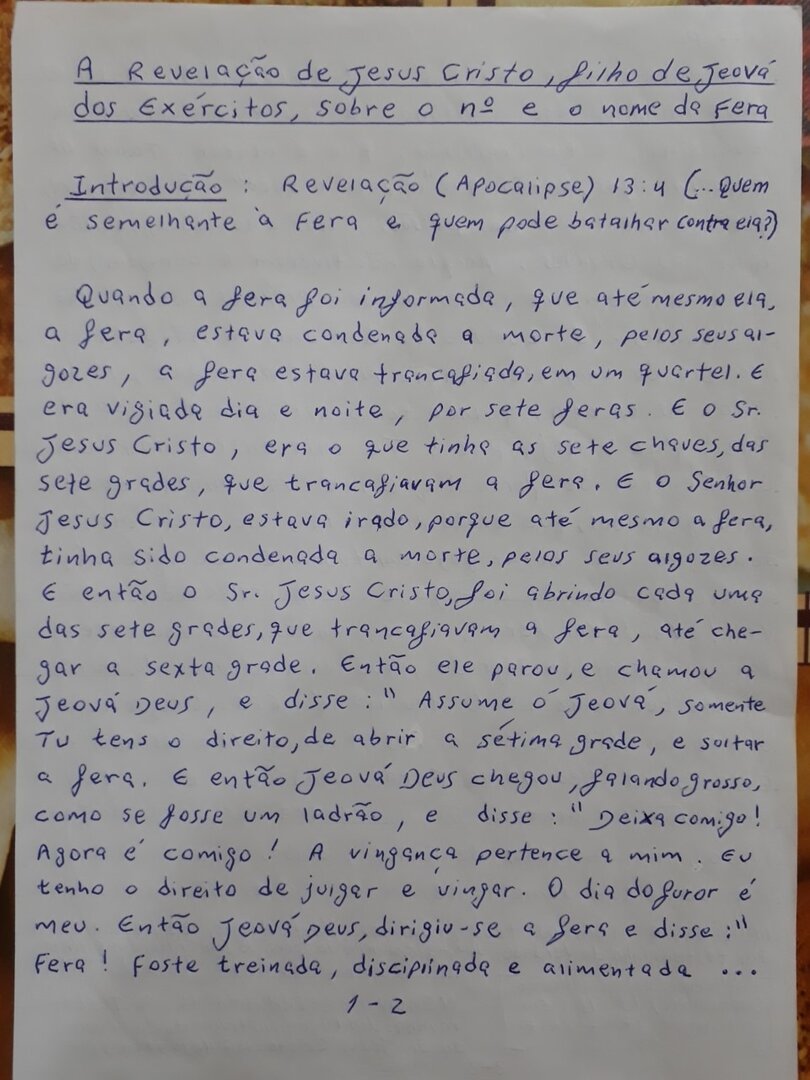 A Revelação de Jesus Cristo, filho de Jeová
dos Exércitos, sobre o nº e o nome da Fera
Introdução : Revelação (Apocalipse) 13:4 (...Quem
é semelhante à Fera e quem pode batalhar contra ela?)
Quando a fera foi informada, que até mesmo ela,
a fera, estava condenada a morte, pelos seus al-
gozes, a fera estava trancafiada, em um quartel. E
era vigiada dia e noite, por sete feras. E o Sr.
Jesus Cristo, era o que tinha as sete chaves, das
sete grades, que trancafiavam a fera. E o Senhor
Jesus Cristo, estava irado, porque até mesmo a fera,
tinha sido condenada a morte, pelos seus algozes.
E então o Sr. Jesus Cristo, foi abrindo cada uma
das sete grades, que trancafiavam a fera, até che-
gar a sexta grade. Então ele parou, e chamou a
Jeová Deus, e disse :" Assume ó Jeová, somente
Tu tens o direito, de abrir a sétima grade, e soltar
a fera. E então Jeová Deus chegou, falando grosso,
como se fosse um ladrão, e disse :" Deixa comigo!
Agora é comigo! A vingança pertence a mim. Eu
tenho o direito de julgar e vingar. O dia do furor é
meu. Então Jeová Deus, dirigiu-se a fera e disse :"
Fera! Foste treinada, disciplinada e alimentada ...
1-2